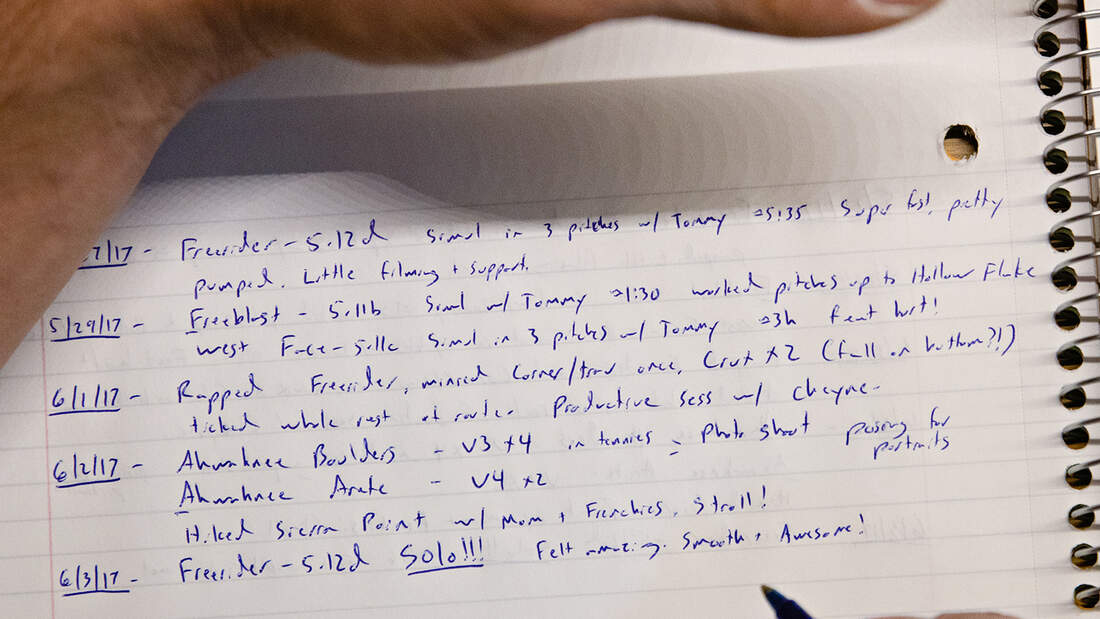 7/17 - Freerider - 5.12d Simul in 3 pitches w/ Tommy 5:35 Super fast, pretty
pumped. Little filming + support.
5/29/17 - Freeblast - 5.11b Simul w/ Tommy 1:30 worked pitches up to Hollow Flake
West Face - 5.11c Simul in 3 pitches w/ Tommy 3h feet hurt!
6/1/17 - Rapped Freerider, minced corner/trav once, Crux x2 (fall on bottom?!)
ticked whole rest of route. Productive sess w/ Cheyne.
6/2/17 - Ahwahnee Boulders - V3 x4 in tennies - photo shoot posing for
portraits
Ahwahnee Arete - V4 x2
Hiked Sierra Point w/ Mom + Frenchies. Stroll!
6/3/17 - Freerider - 5.12d Solo!!! Felt amazing. Smooth + Awesome!